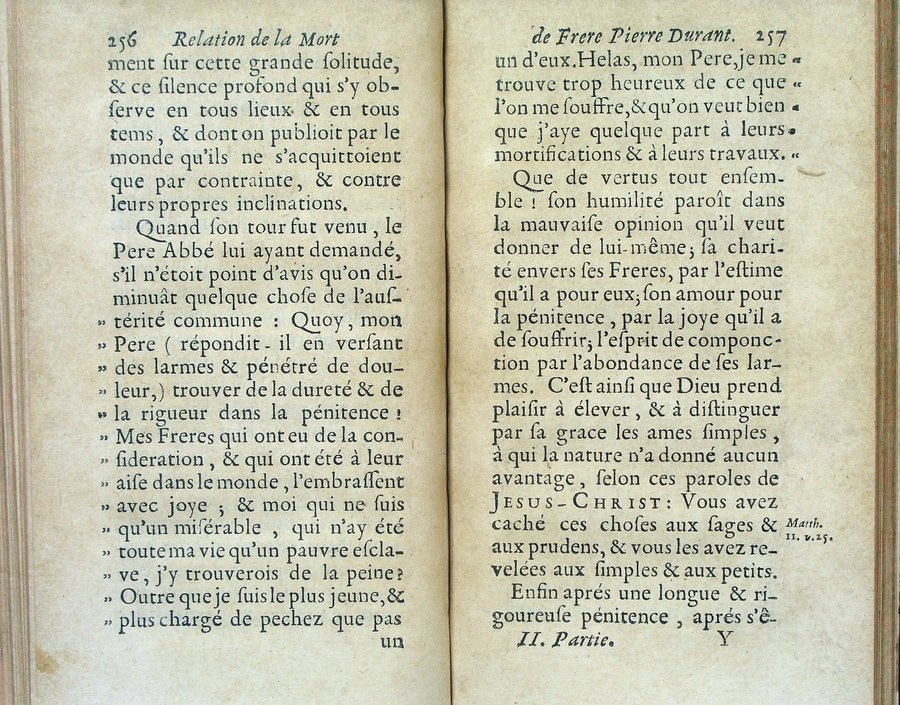 256 Relation de la Mort
ment ſur cette grande ſolitude,
& ce ſilence profond qui s'y ob-
ſerve en tous lieux & en tous
tems, & dont on publioit par le
monde qu'ils ne s'acquittoient
que par contrainte, & contre
leurs propres inclinations.
Quand ſon tour fut venu, le
Pere Abbé lui ayant demandé,
s'il n'étoit point d'avis qu'on di-
minuât quelque choſe de l'auſ-
„ térité commune : Quoy, mon
„ Pere ( répondit-il en verſant
„ des larmes & pénétré de dou-
„ leur,) trouver de la dureté & de
„ la rigueur dans la pénitence !
„ Mes Freres qui ont eu de la con-
„ ſideration, & qui ont été à leur
„ aiſe dans le monde, l'embraſſent
„ avec joye ; & moi qui ne ſuis
„ qu'un miſérable, qui n'ay été
„ toute ma vie qu'un pauvre eſcla-
„ ve, j'y trouverois de la peine ?
„ Outre que je ſuis le plus jeune, &
„ plus chargé de pechez que pas
un
de Frere Pierre Durant. 257
un d'eux. Helas, mon Pere, je me “
trouve trop heureux de ce que “
l'on me ſouffre, & qu'on veut bien “
que j'aye quelque part à leurs “
mortifications & à leurs travaux. “
Que de vertus tout enſem-
ble ! ſon humilité paroît dans
la mauvaiſe opinion qu'il veut
donner de lui-même ; ſa chari-
té envers ſes Freres, par l'eſtime
qu'il a pour eux ; ſon amour pour
la pénitence, par la joye qu'il a
de ſouffrir ; l'eſprit de componc-
tion par l'abondance de ſes lar-
mes. C'eſt ainſi que Dieu prend
plaiſir à élever, & à diſtinguer
par ſa grace les ames ſimples,
à qui la nature n'a donné aucun
avantage, ſelon ces paroles de
JESUS-CHRIST : Vous avez
caché ces choſes aux ſages &
aux prudens, & vous les avez re-
velées aux ſimples & aux petits.
Matth.
11. v. 25.
Enfin aprés une longue & ri-
goureuſe pénitence, aprés s'ê-
II. Partie. Y